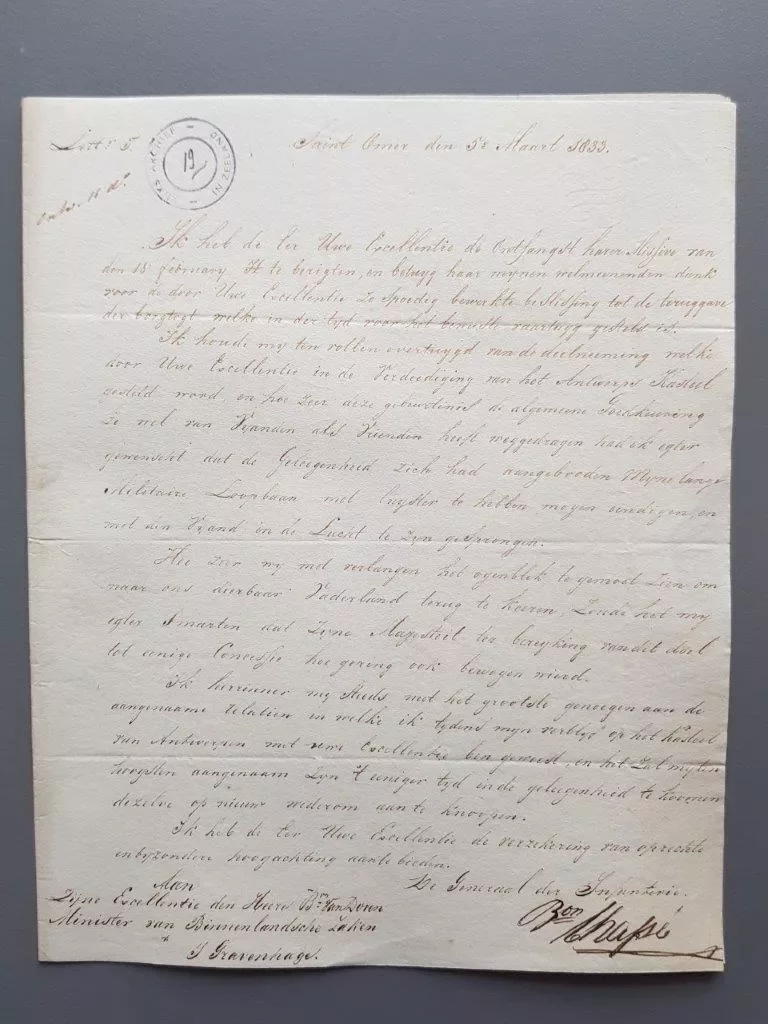 Lett: S.
Saint Omer den 5e Maart 1833.
RYKSARCHIEF IN ZEELAND
19
ontv. 11 do
Ik heb de Eer Uwe Excellentie de Ontfangst harer Missive van
den 18 february ll te berigten, en betuyg haar mynen welmeenenden dank
voor de door Uwe Excellentie zo spoedig bewerkte beslissing tot de teruggave
der borgtogt welke in der tyd voor het bewuste vaartuyg gesteld is.
Ik houde my ten vollen overtuygd van de deelneeming welke
door Uwe Excellentie in de Verdeediging van het Antwerps Kasteel
gesteld word, en hoe zeer deze gebeurtenis de algemeene Goedkeuring
zo wel van Vyanden als Vrienden heeft weggedragen had ik egter
gewenscht dat de Geleegenheid zich had aangebooden Myne lange
Militaire Loopbaan met luyster te hebben mogen eindigen, en
met den Vyand in de Lucht te zyn gesprongen.
Hoe zeer wy met verlangen het ogenblik te gemoet zien om
naar ons dierbaar Vaderland terug te keeren, Zoude het my
egter smarten dat Zyne Majesteit ter bereyking van dit doel
tot eenige Concessie hoe gering ook bewogen wierd.
Ik herinner my steeds met het grootste genoegen aan de
aangenaame relatien in welke ik tydens myn verblyf op het kasteel
van Antwerpen met uwe Excellentie ben geweest, en het zal my ten
hoogsten aangenaam zyn 't eeniger tyd in de geleegenheid te koomen
dezelve op nieuw wederom aan te knoopen.
Ik heb de Eer Uwe Excellentie de verzekering van oprechte
en byzondere hoogachting aan te bieden.
Aan
De Generaal der Infanterie.
Zijne Excellentie den Heere Bn Van Doorn
Minister van Binnenlandsche Zaken
S Gravenhage.
Bon Chassé